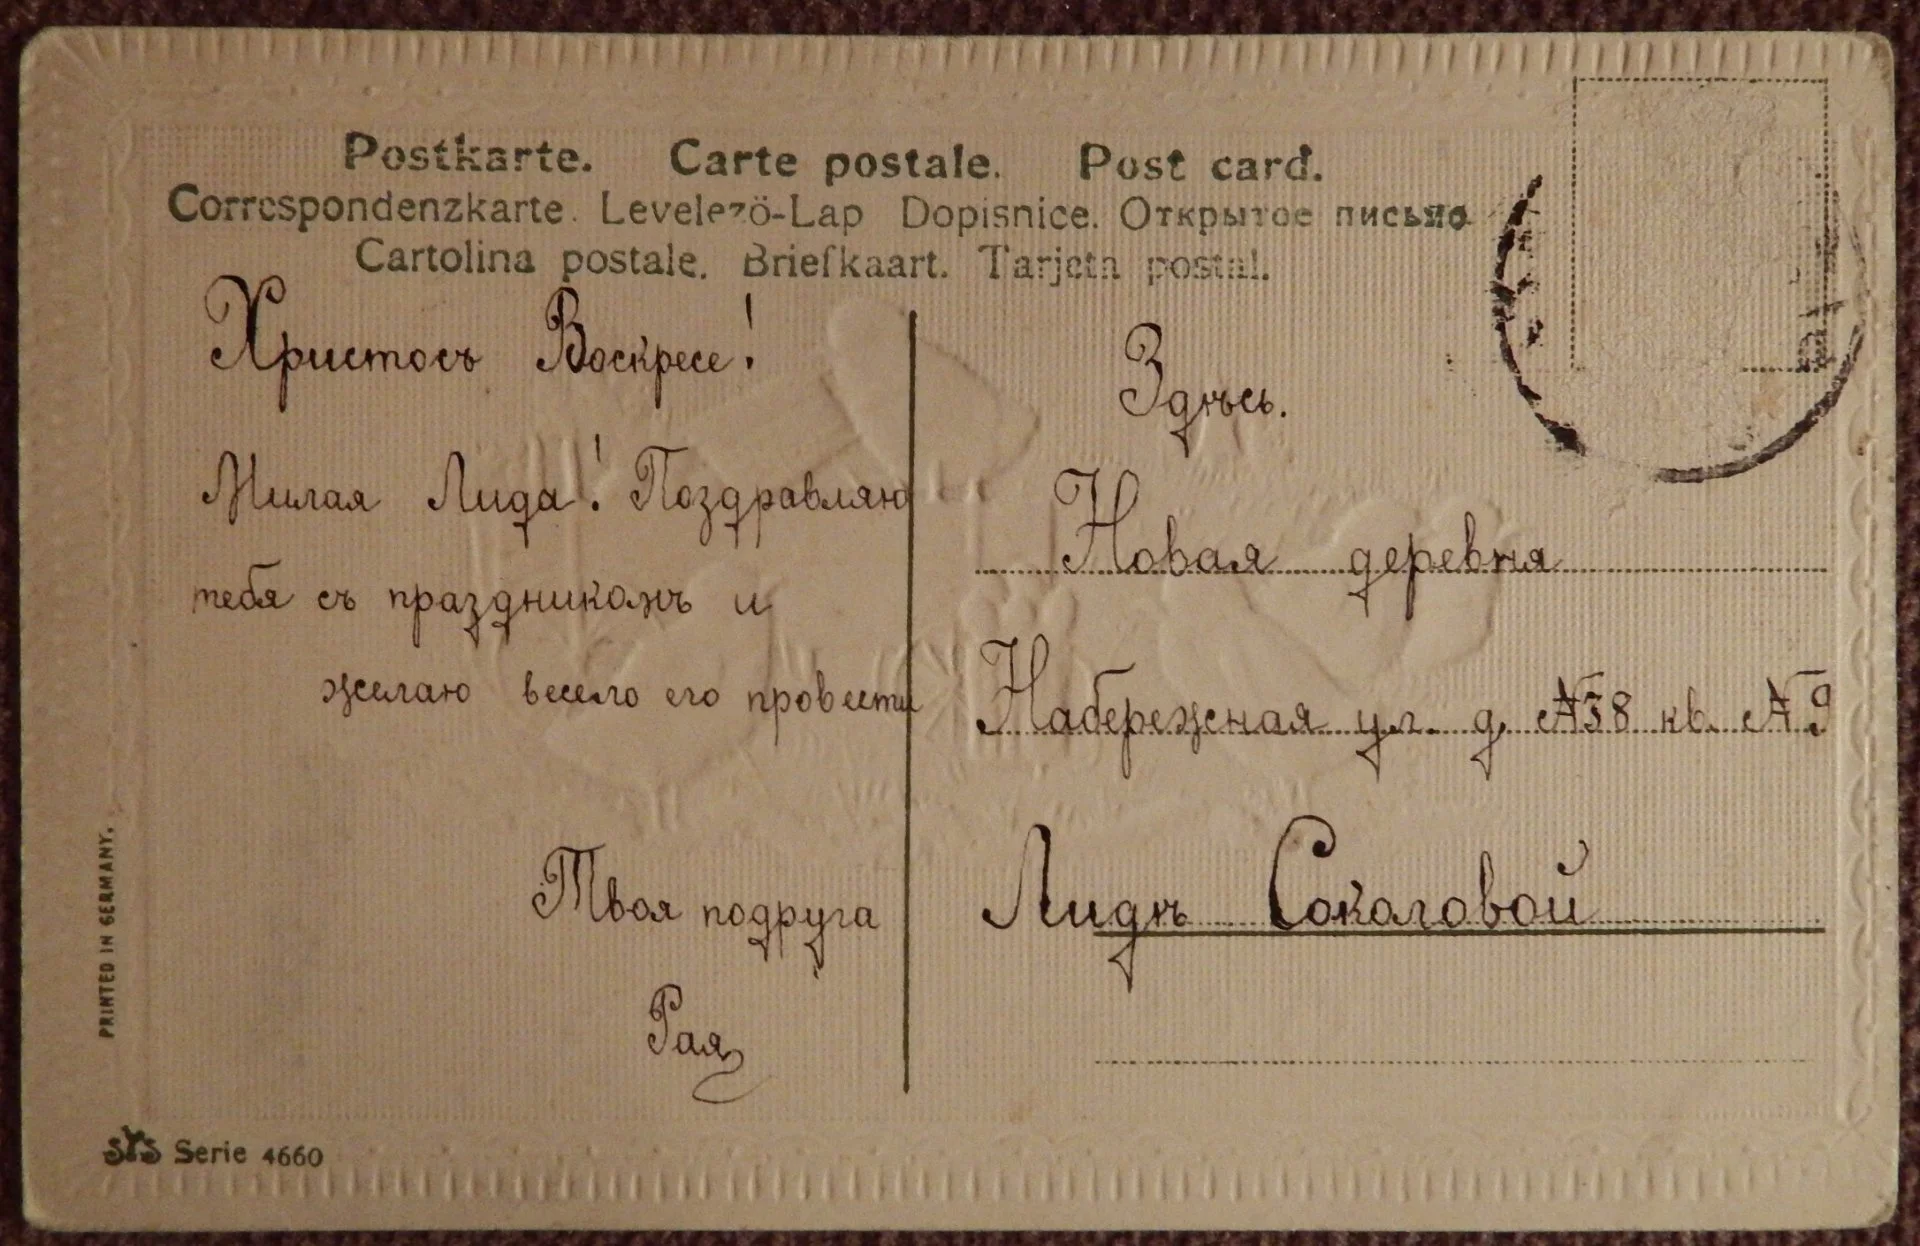 Postkarte. Carte postale. Post card.
Correspondenzkarte. Levelező-Lap Dopisnice. Открытое письмо
Cartolina postale. Briefkaart. Tarjeta postal.
Христосъ Воскресе!
Милая Лида! Поздравляю
тебя съ праздникомъ и
желаю весело его провести
Твоя подруга
Рая
Здѣсь.
Новая деревня
Набережная ул. д. №38 кв. №9
Лидѣ Соколовой
PRINTED IN GERMANY.
Serie 4660